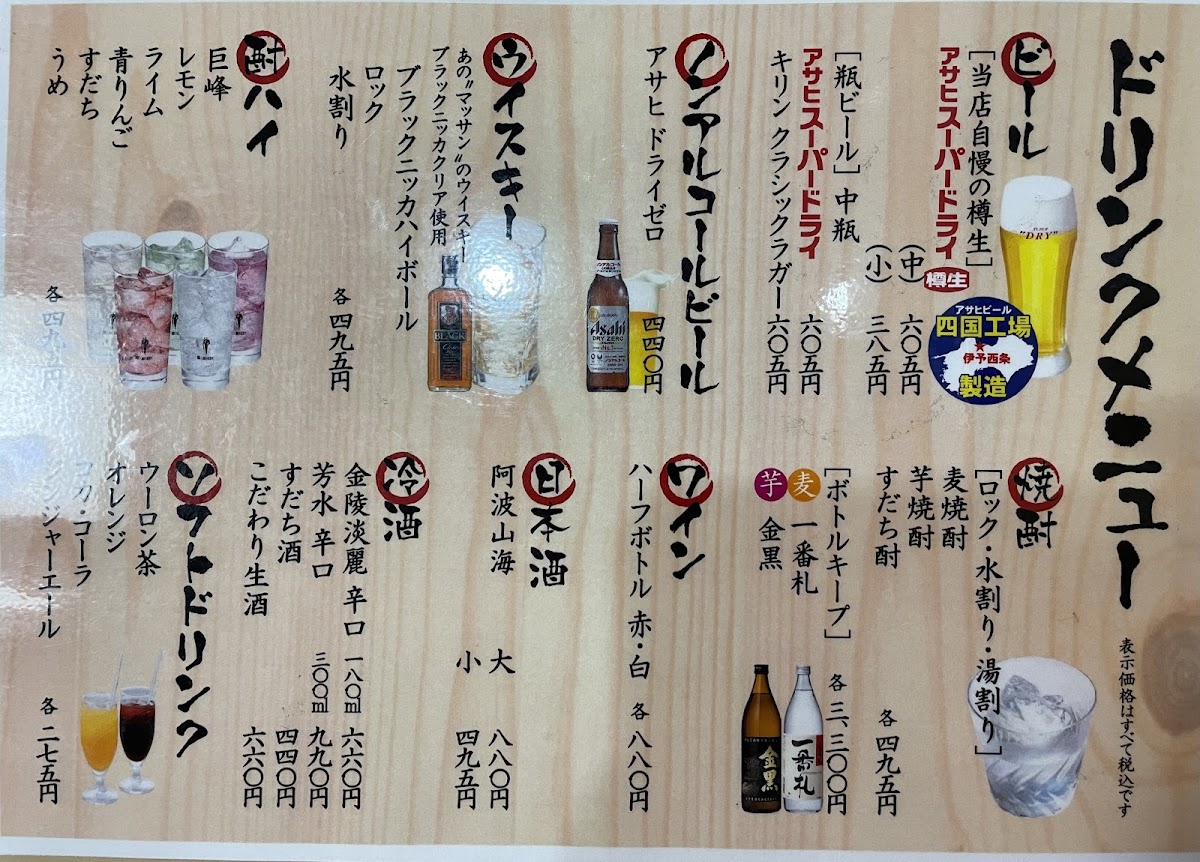 ドリンクメニュー
表示価格はすべて税込です
ビール
[当店自慢の樽生]
アサヒスーパードライ 樽生
(中) 六〇五円
(小) 三八五円
[瓶ビール] 中瓶
アサヒスーパードライ 六〇五円
キリン クラシックラガー 六〇五円
"DRY"
アサヒビール
四国工場
伊予西条
製造
ノンアルコールビール
アサヒ ドライゼロ 四四〇円
Asahi
DRY ZERO
ウイスキー
あの"マッサン"のウイスキー
ブラックニッカクリア使用
ブラックニッカハイボール
ロック
水割り
各 四九五円
BLACK
酎ハイ
巨峰
レモン
ライム
青りんご
すだち
うめ
各 四九五円
焼酎
[ロック・水割り・湯割り]
麦焼酎
芋焼酎
すだち酎
各 四九五円
[ボトルキープ] 各 三、三〇〇円
麦 一番札
芋 金黒
一番札
金黒
ワイン
ハーフボトル 赤・白 各 八八〇円
日本酒
阿波山海 大 八八〇円
小 四九五円
冷酒
金陵淡麗 辛口 一八〇ml 六六〇円
芳水 辛口 三〇〇ml 九九〇円
すだち酒 四四〇円
こだわり生酒 六六〇円
ソフトドリンク
ウーロン茶
オレンジ
コカ・コーラ
ジンジャーエール
各 二七五円